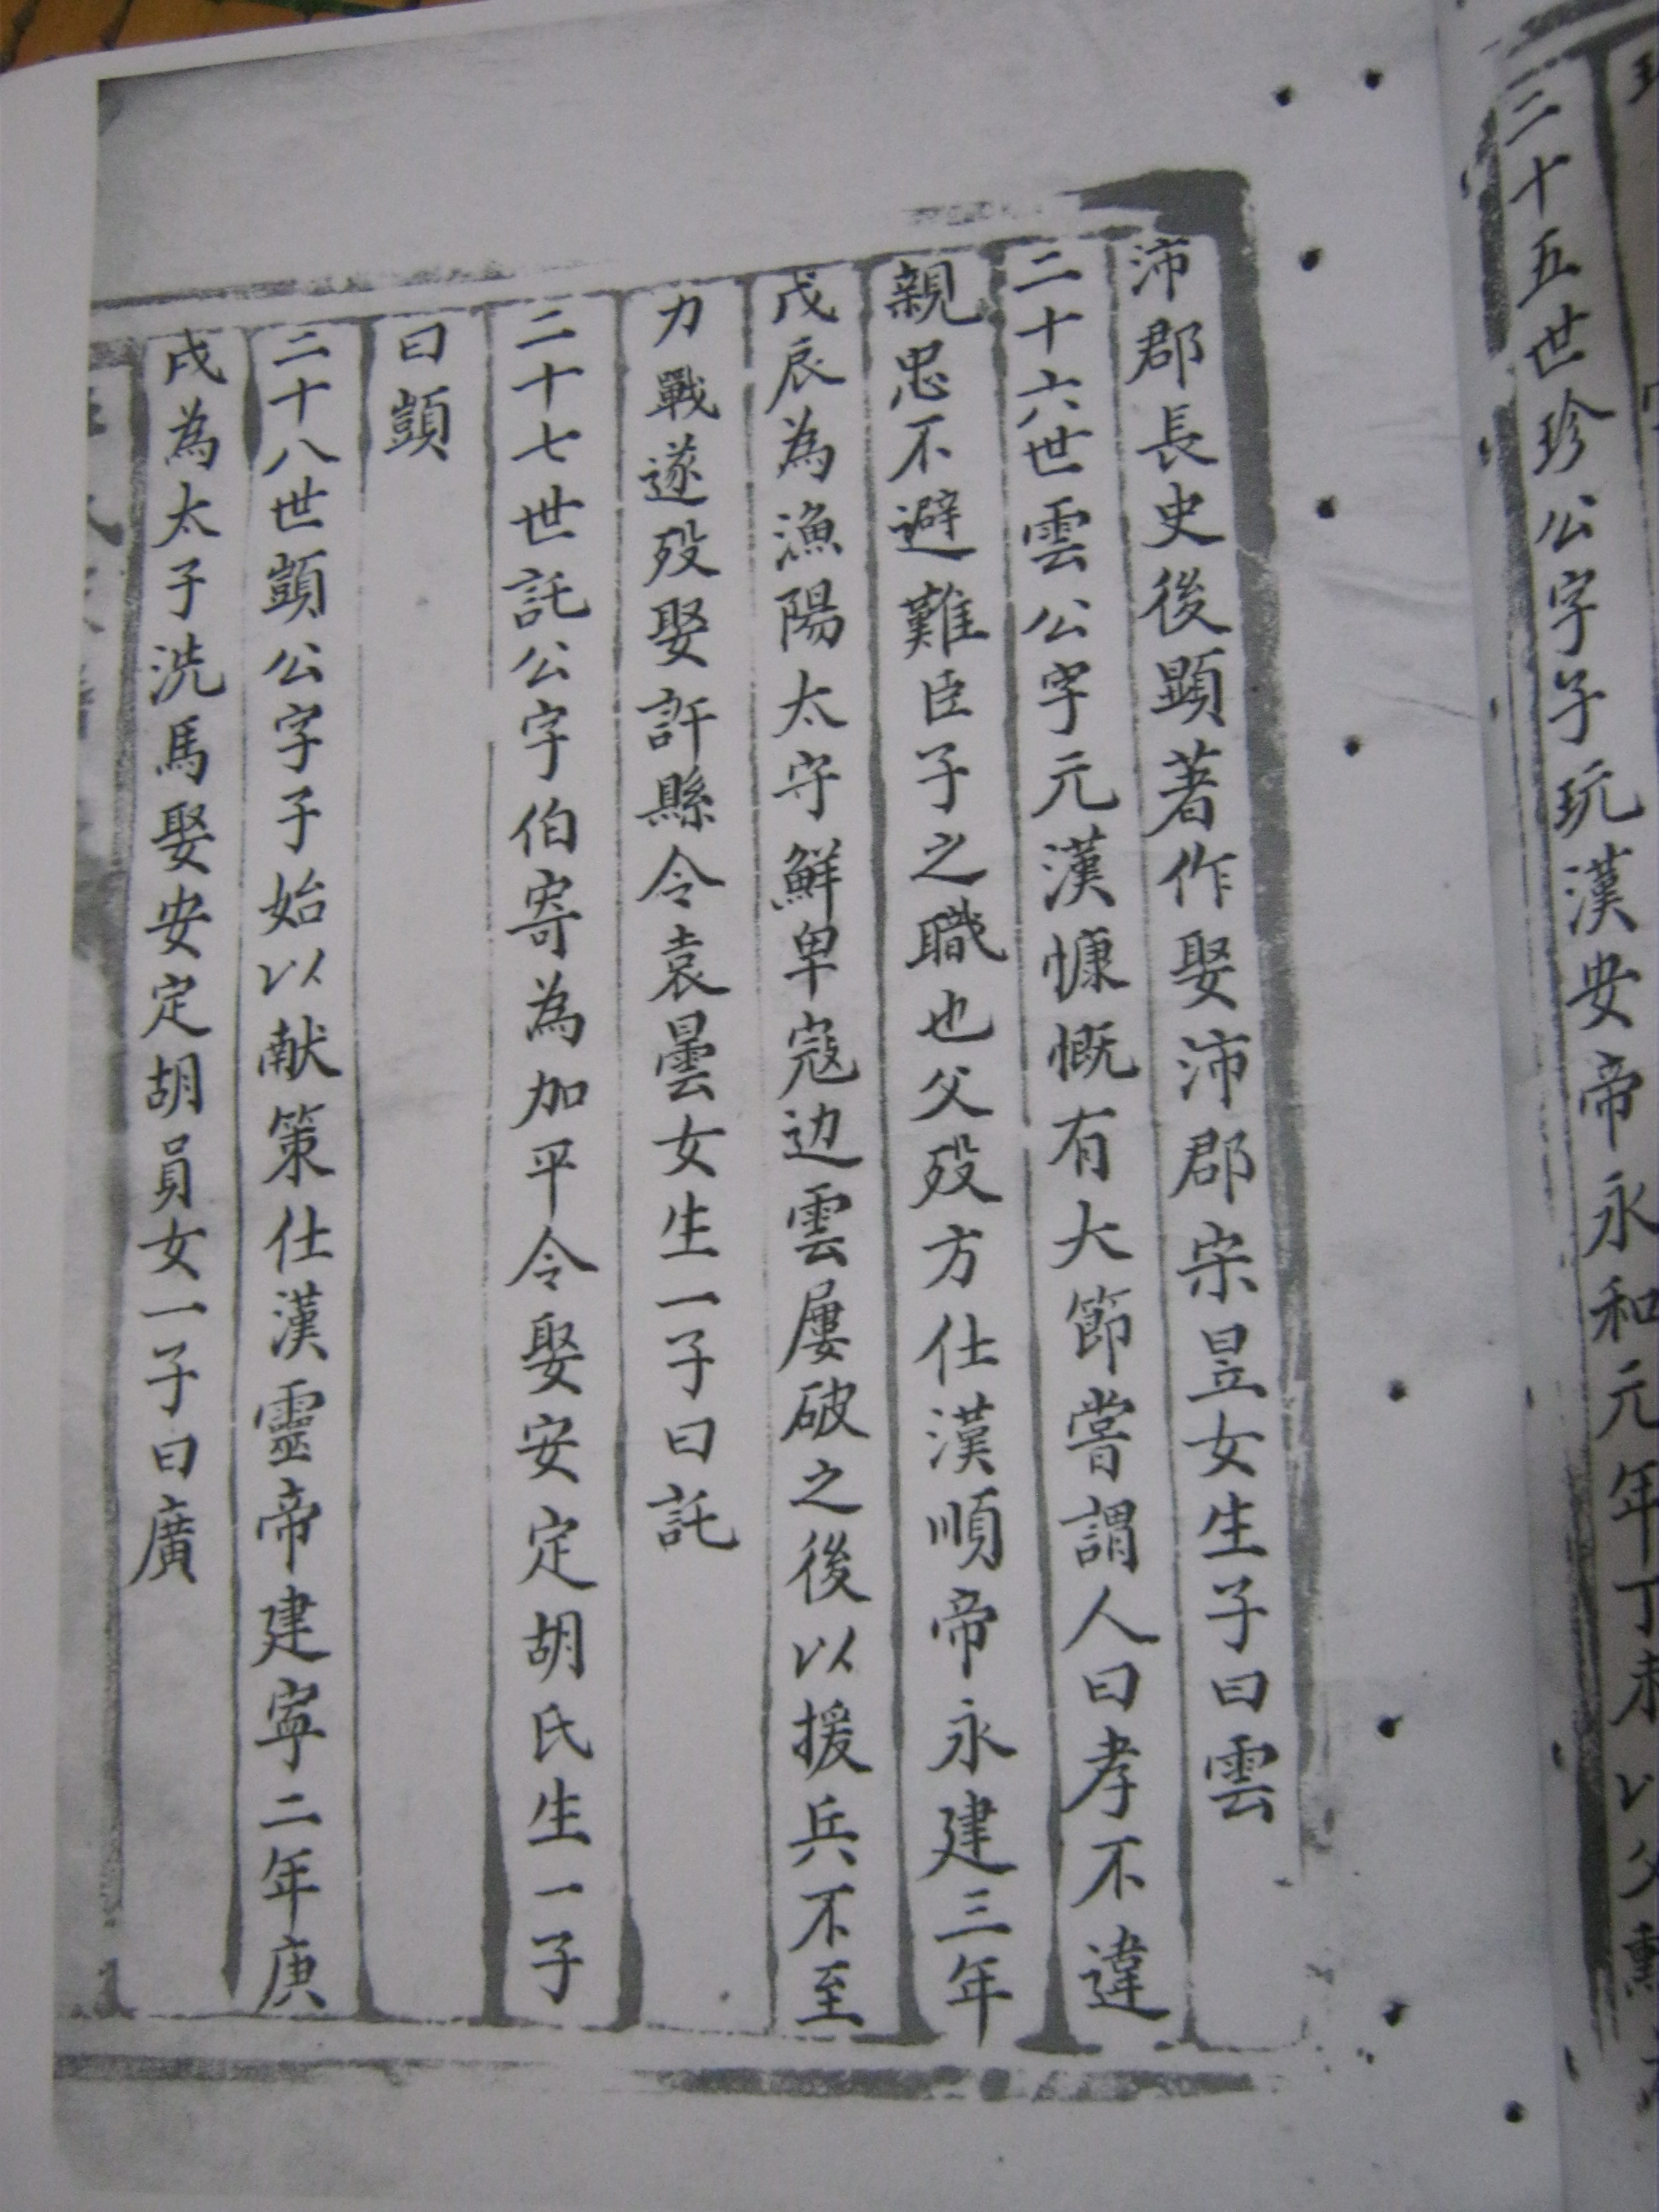 二十五世珍公字子玩漢安帝永和元年丁未以父勲
沛郡長史後顕著作娶沛郡宗昱女生子曰雲
二十六世雲公字元漢慷慨有大節嘗謂人曰孝不違
親忠不避難臣子之職也父歿方仕漢順帝永建三年
戊辰為漁陽太守鮮卑寇边雲屢破之後以援兵不至
力戰遂歿娶許縣令袁曇女生一子曰託
二十七世託公字伯寄為加平令娶安定胡氏生一子
曰顗
二十八世顗公字子始以献策仕漢靈帝建寧二年庚
戌為太子洗馬娶安定胡員女一子曰廣